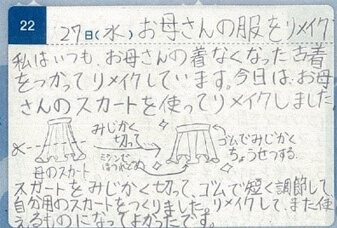 22
27日(水) お母さんの服をリメイク
私はいつも、お母さんの着なくなった古着
をつかってリメイクしています。今日は、お母
さんのスカートを使ってリメイクしました。
みじかく
切って
ミシンで
はつれどめ
ゴムでみじかく
ちょうせつする
母のスカート
スカートをみじかく切って、ゴムで短く調節して、
自分用のスカートをつくりました。リメイクして、また使
えるものになってよかったです。